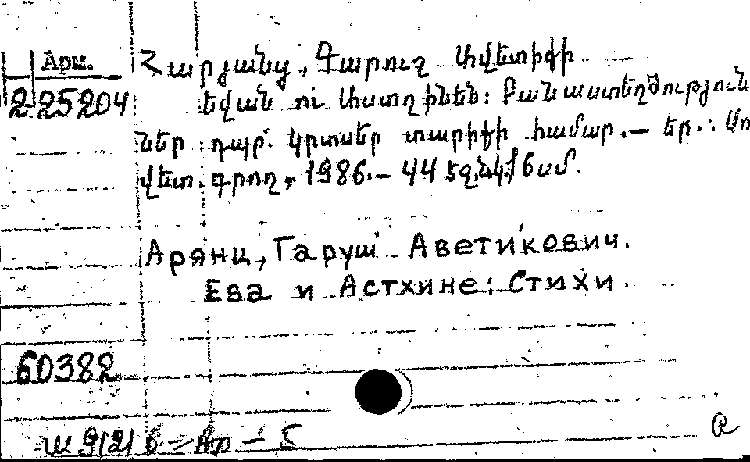 Арм.
2 25204
Հարյանց, Գարուշ Ավետիքի
Եվան ու Աստղինեն: Բանաստեղծություն
ներ դպր. կրտսեր տարիքի համար.— Եր.: Սո
վետ. գրող, 1986.— 44 էջ, նկ. 16 սմ.
Арянц, Гаруш Аветикович.
Ева и Астхине: Стихи.
60382